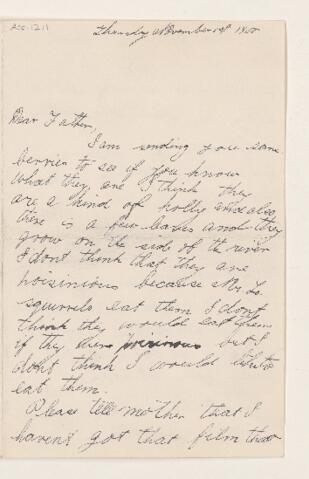 Thursday November 1st
Dear Father,
I am sending you some
berries to see if you know
what they are I think they
are a kind of holly and also
there is a few leaves and they
grow on the side of the river
I dont think that they are
poisinious because the
squirrels eat them I dont
think they would eat them
if they were poisinous but I
dont think I would like to
eat them.
Please tell mother that I
havent got that film that